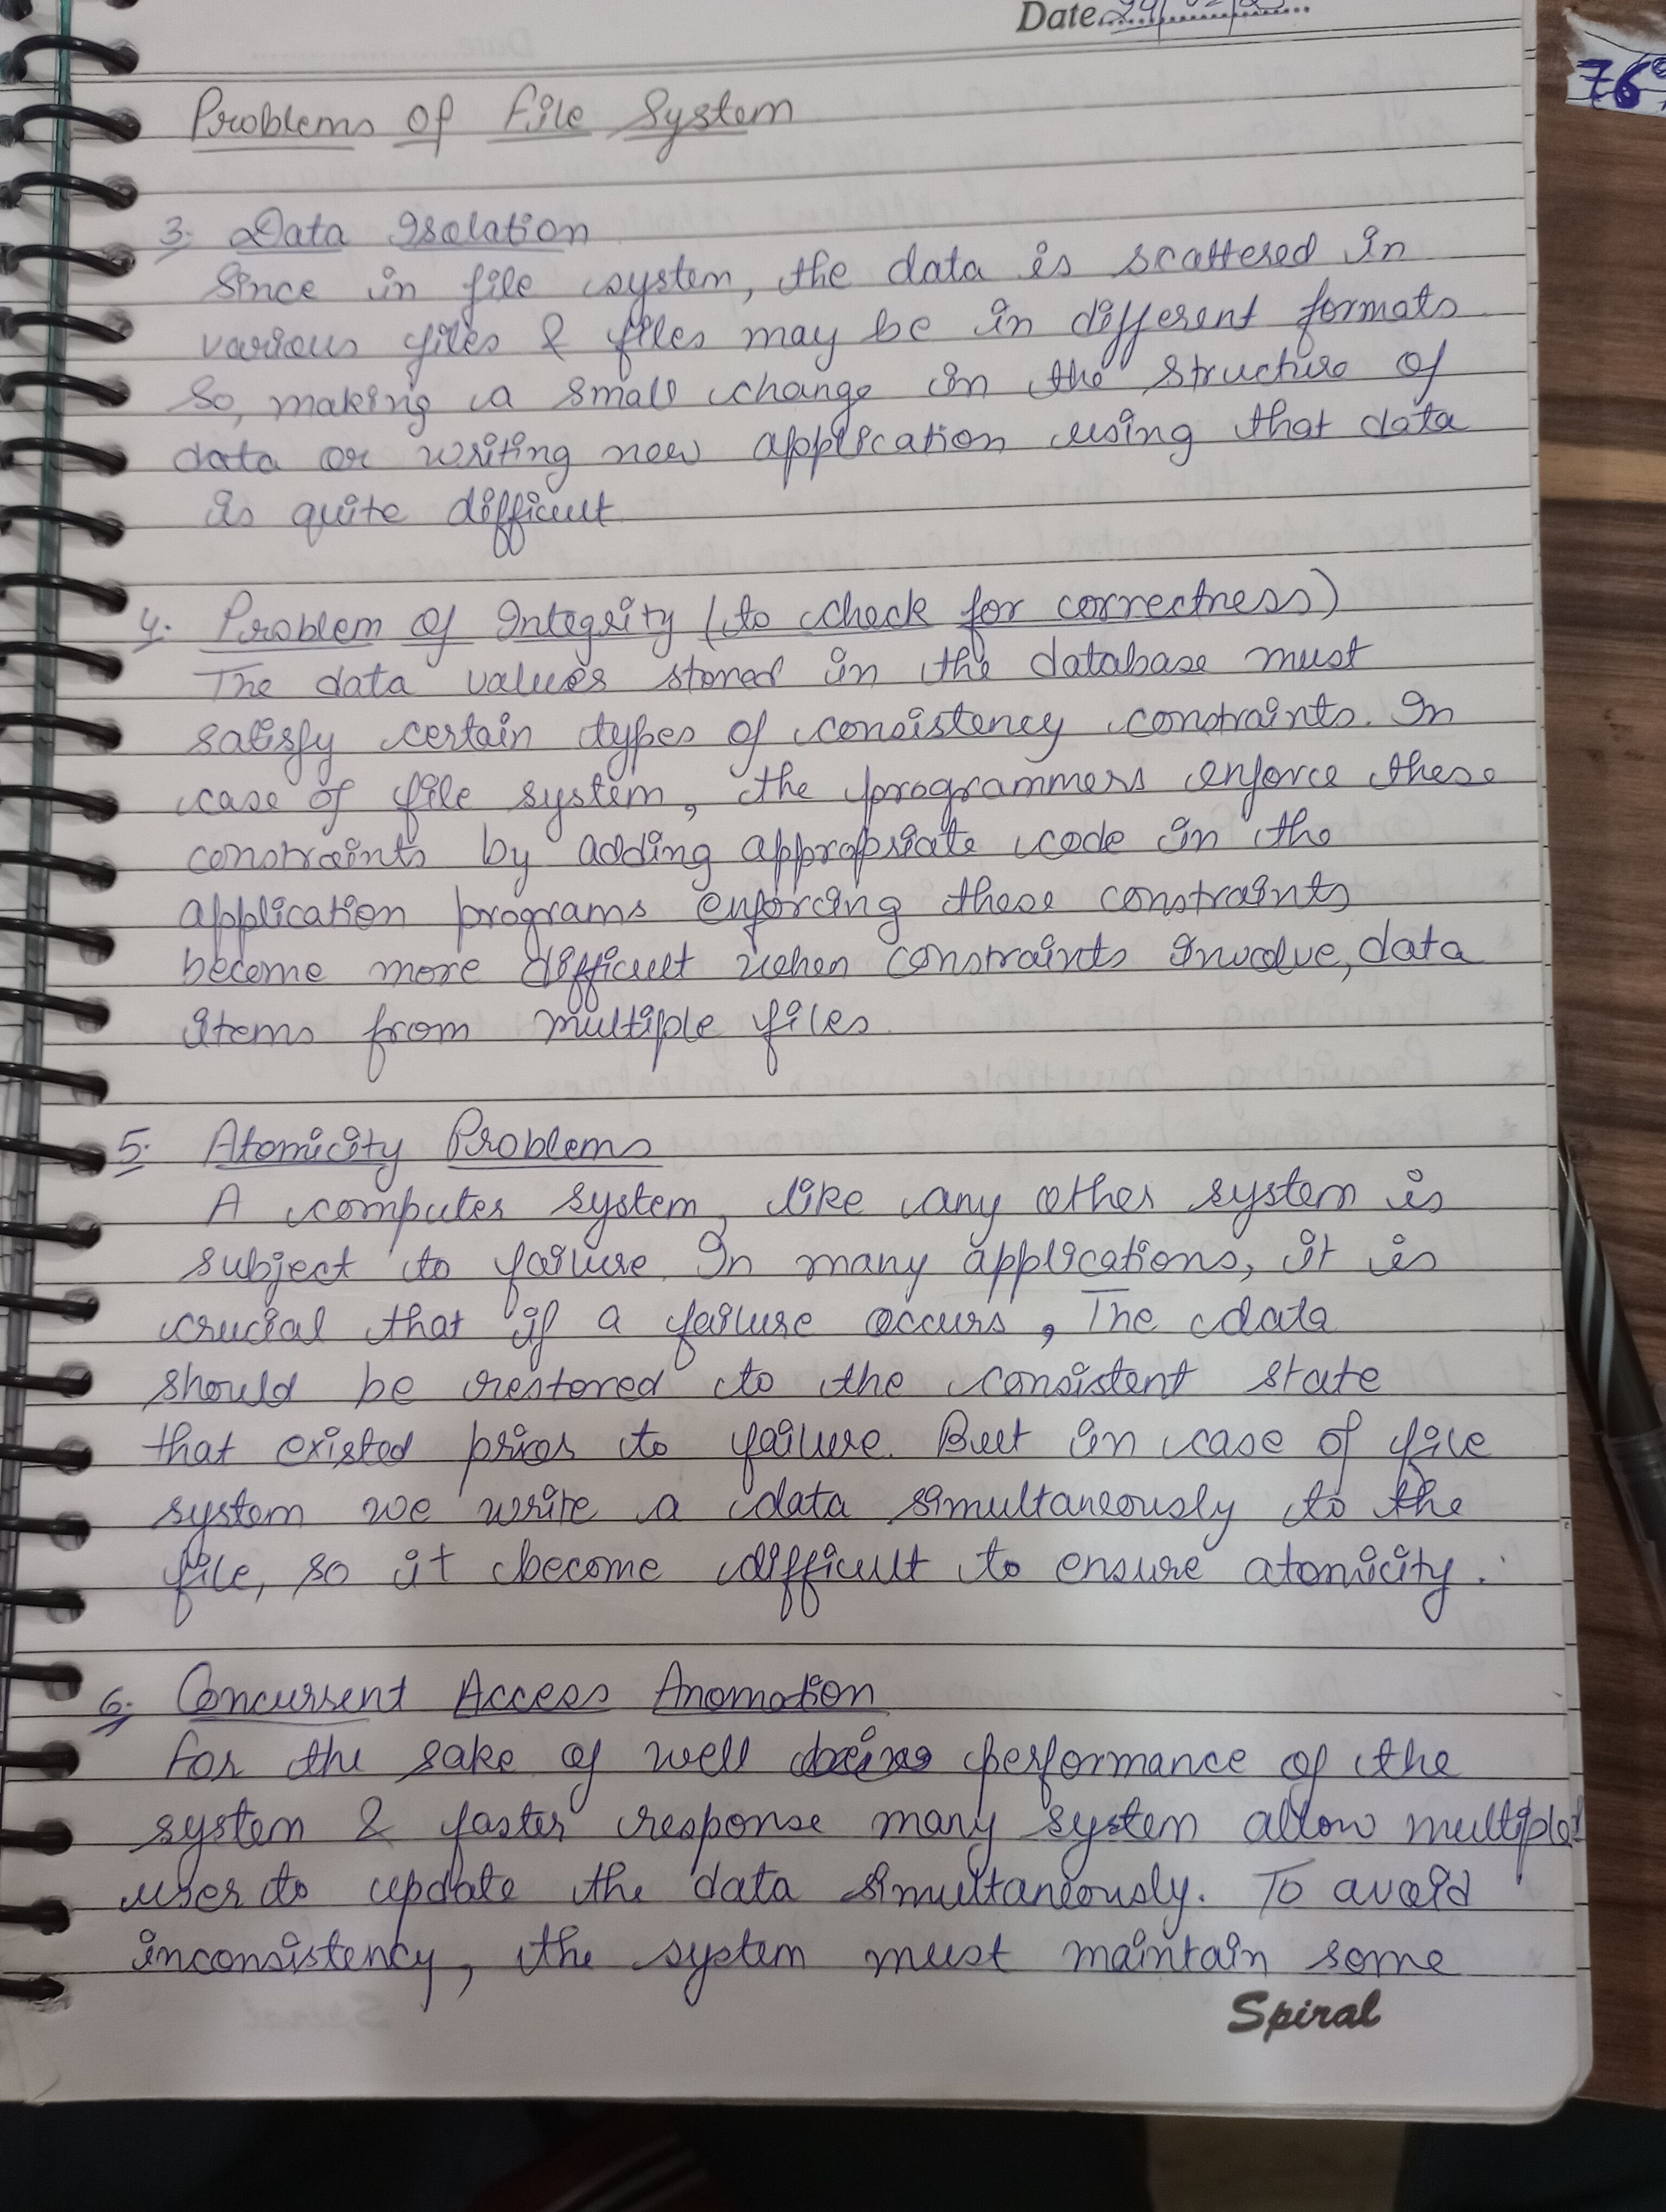 Date
76
Problems of File System
3. Data Isolation
Since in file system, the data is scattered in
various files & files may be in different formats
So, making a small change in the structure of
data or writing new application using that data
is quite difficult
4. Problem of Integrity (to check for correctness)
The data values stored in the database must
satisfy certain types of consistency constraints. In
case of file system, the programmers enforce these
constraints by adding appropriate code in the
application programs enforcing these constraints
become more difficult when constraints involve, data
items from multiple files
5. Atomicity Problems
A computer system, like any other system is
subject to failure. In many applications, it is
crucial that if a failure occurs, The data
should be restored to the consistent state
that existed prior to failure. But in case of file
system we write a data simultaneously to the
file, so it become difficult to ensure atomicity.
6. Concurrent Access Anomation
For the sake of well performance of the
system & faster response many system allow multiple
user to update the data simultaneously. To avoid
inconsistency, the system must maintain some
Spiral